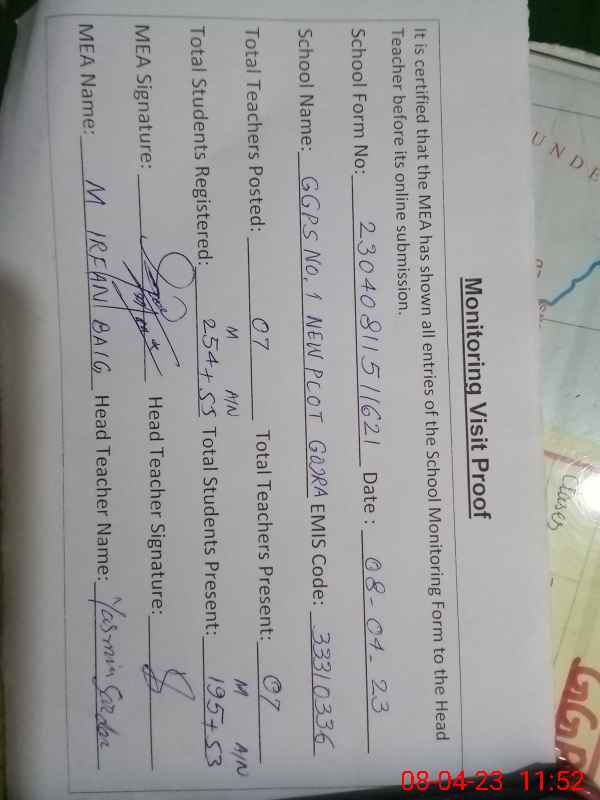 Monitoring Visit Proof
It is certified that the MEA has shown all entries of the School Monitoring Form to the Head
Teacher before its online submission.
School Form No: 23040811511621 Date : 08-04-23
School Name: GGPS No. 1 NEW PLOT GOJRA EMIS Code: 33310336
Total Teachers Posted: 07 Total Teachers Present: 07
M A/N M A/N
Total Students Registered: 254+55 Total Students Present: 195+53
MEA Signature: Head Teacher Signature:
MEA Name: M IRFAN BAIG Head Teacher Name: Yasmin Sardar
UNDE
Clases
GGP
08-04-23 11:52